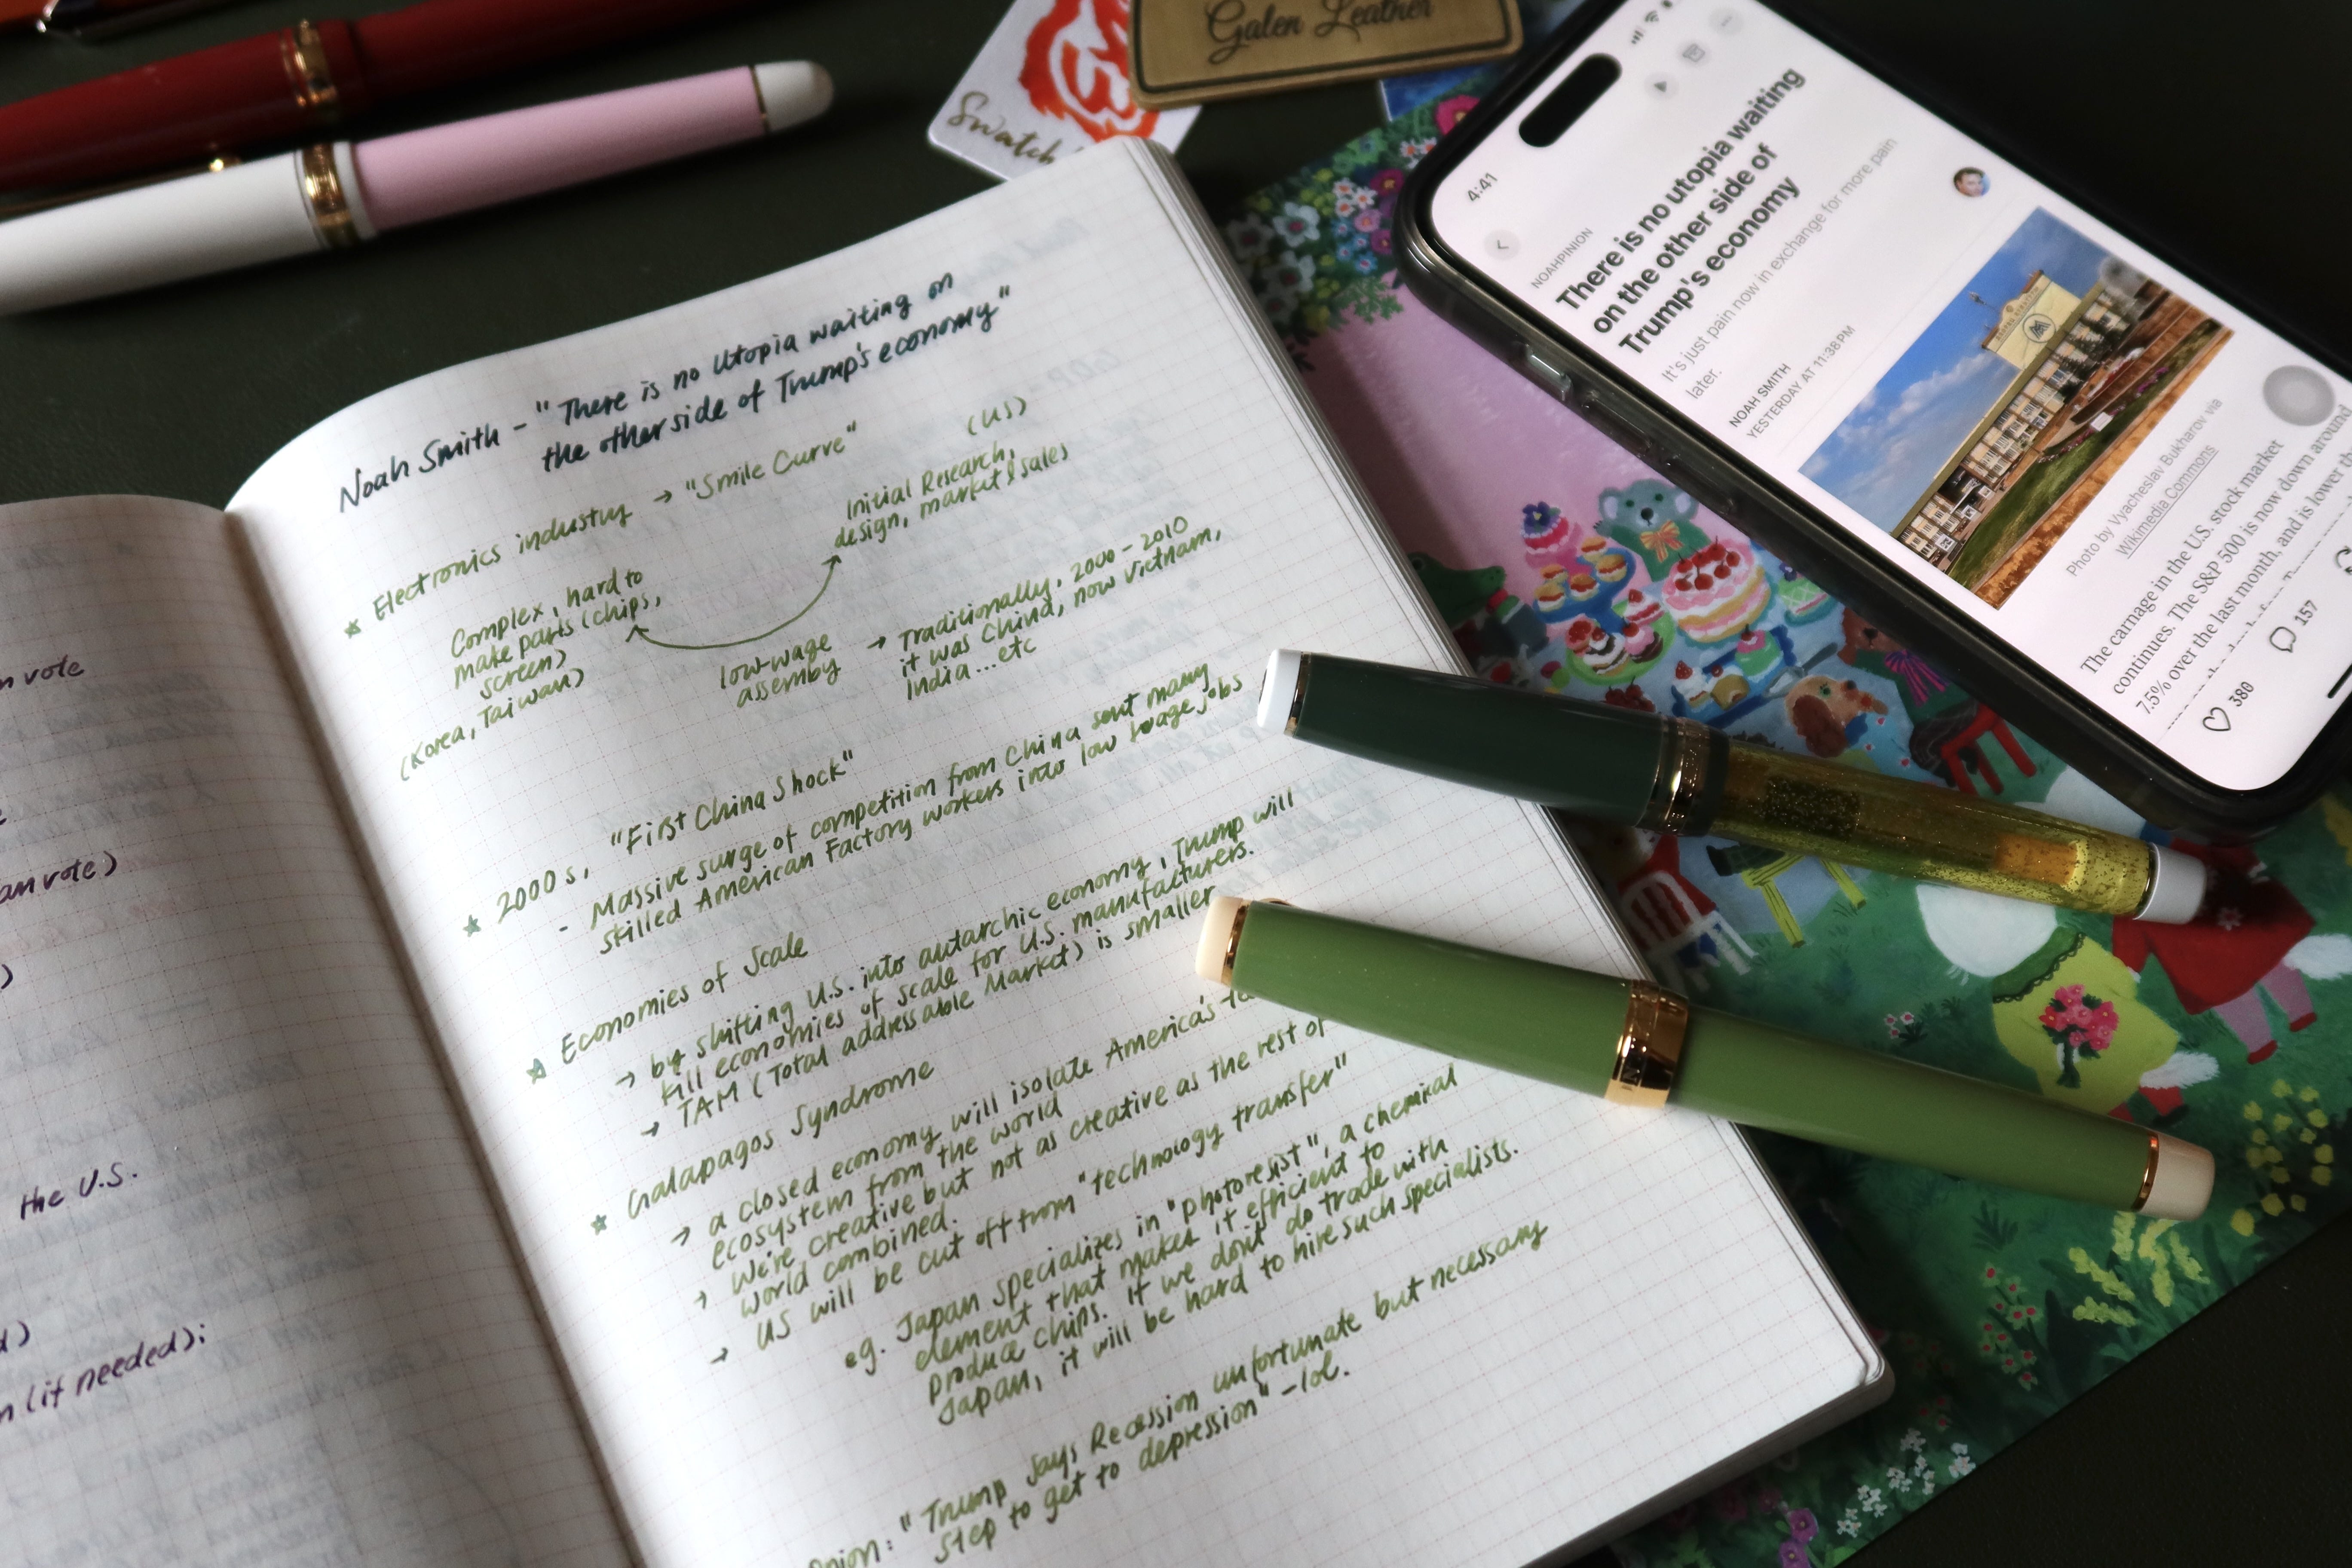 Galen Leather
Swatch
Noah Smith - "There is no Utopia waiting on
the other side of Trump's economy"
★ Electronics industry → "Smile Curve"
(US)
Initial Research,
design, market & sales
Complex, hard to
make parts (chips,
screen)
(Korea, Taiwan)
low-wage
assemby
→ Traditionally, 2000-2010
it was China, now Vietnam,
India...etc
★ 2000s, "First China Shock"
- Massive surge of competition from China sent many
skilled American Factory workers into low wage jobs
★ Economies of Scale
→ by shifting U.S. into autarchic economy, Trump will
kill economies of scale for U.S. manufacturers.
→ TAM (Total addressable Market) is smaller
★ Galapagos Syndrome
→ a closed economy will isolate America's
ecosystem from the world
→ We're creative but not as creative as the rest of
world combined.
→ US will be cut off from "technology transfer"
eg. Japan specializes in "photoresist", a chemical
element that makes it efficient to
produce chips. If we don't do trade with
Japan, it will be hard to hire such specialists.
"Trump says Recession unfortunate but necessary
step to get to depression" -lol.
vote
vote)
the U.S.
(if needed);
4:41
NOAHPINION
There is no utopia waiting
on the other side of
Trump's economy
It's just pain now in exchange for more pain
later.
NOAH SMITH
YESTERDAY AT 11:38 PM
Photo by Vyacheslav Bukharov via
Wikimedia Commons
The carnage in the U.S. stock market
continues. The S&P 500 is now down around
7.5% over the last month, and is lower
380
157